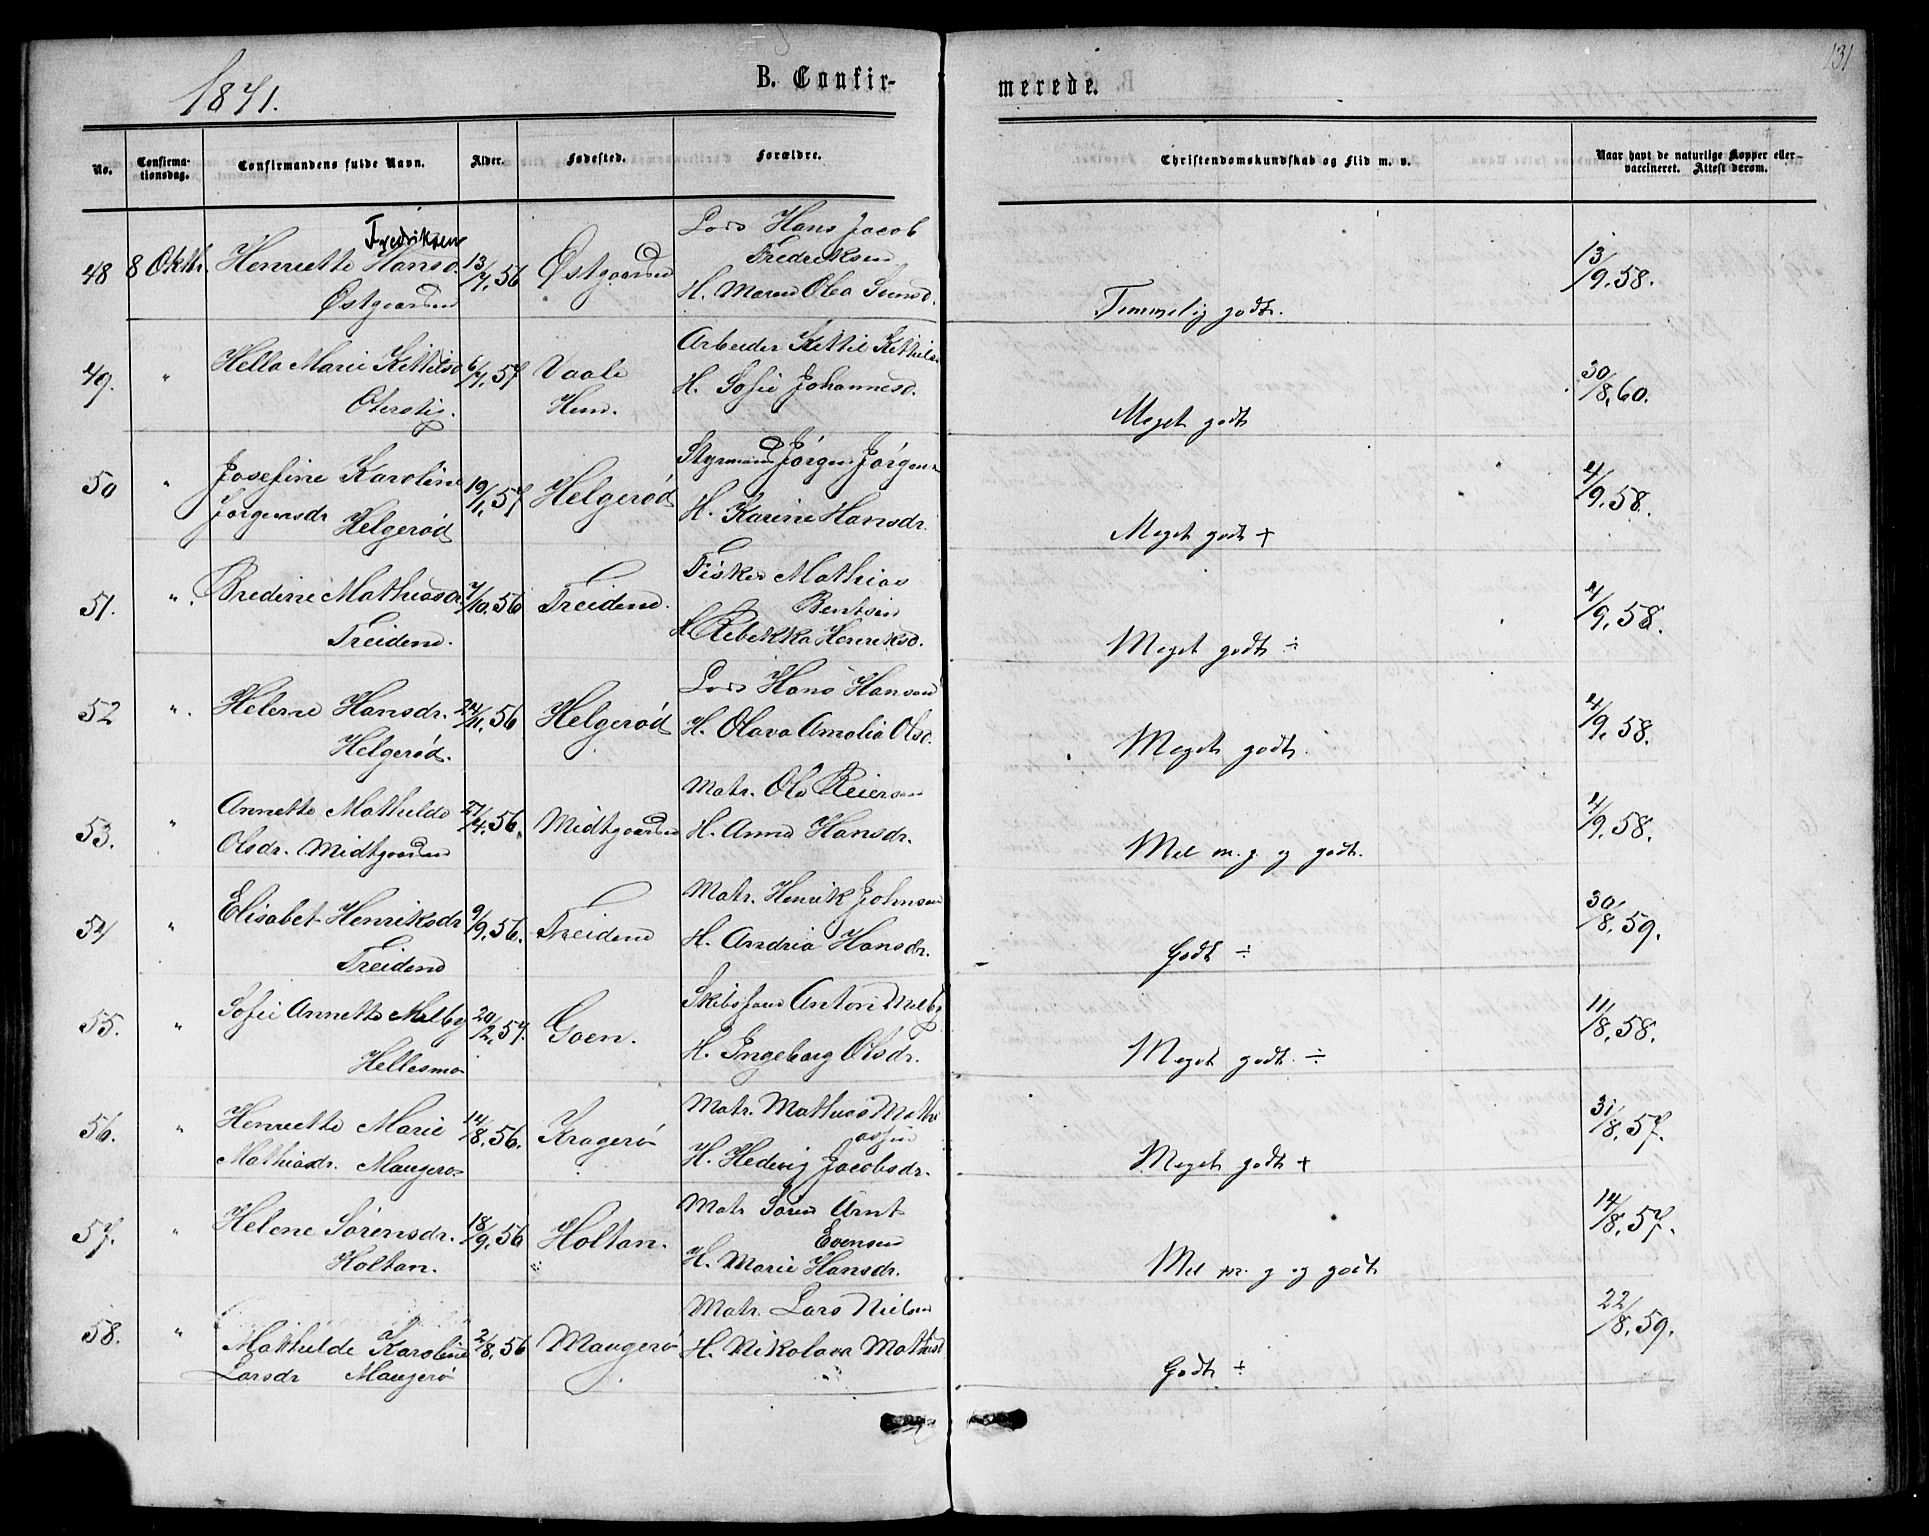 131
1871.
B. Confir-
merede.
No.
Confirma-
tionsdag.
Confirmandens fulde Navn.
Alder.
Fødested.
Forældre.
Christendomskundskab og Flid m. v.
Naar havt de naturlige Kopper eller
vaccineret. Attest derom.
Fredriksen
Lods Hans Jacob
48 8 Oktbr. Henriette Hansd. 13/7, 56 Østgaarden Fredriksen 13/9, 58.
Østgaarden H. Maren Olea Temmelig godt.
49. " Hella Marie Kittilsd 6/7, 57 Vaale Arbeider Kittil Kittilsen 30/8, 60.
Oterstig. Hem. H. Sofie Johannesd. Meget godt
50 " Josefine Karoline 19/1, 57 Helgerød Styrmand Jørgen Jørgens. 4/9, 58.
Jørgensdr Helgerød H. Karine Hansdr. Meget godt +
51. " Bredine Mathiasdr 7/10, 56 Treidene. Fisker Mathias 4/9, 58.
Bentsen
Treidene. H. Rebekka Henriksd. Meget godt ÷
52 " Helene Hansdr. 24/11, 56 Helgerød Lods Hans Hansen 4/9, 58.
Helgerød. H. Olava Amalia Olsd. Meget godt.
53. " Annette Mathilde 27/4, 56. Midtgaarden Matr. Ole Reiersen 4/9, 58.
Olsdr. Midtgaarden H. Anne Hansdr. Mel m. g. og godt.
54 " Elisabet Henriksdr 9/9, 56. Treidene Matr. Henrik Johnsen 30/8, 59.
Treidene H. Andria Hansdr. Godt ÷
55. " Sofie Annette Melby 20/2, 57. Goen. Skibsfører Anton Melby 11/8, 58.
Hellesmo H. Ingeborg Olsdr. Meget godt ÷
56. " Henriette Marie 14/8, 56. Kragerø Matr. Mathias Mathi 31/8, 57.
assen
Mathiasdr. Maugerø H. Hedvig Jacobsdr. Meget godt +
57. " Helene Sørensdr. 18/9, 56 Holtan. Matr Søren Arnt 14/8, 57.
Evensen
Holtan. H. Marie Hansdr. Mel m. g og godt
58. " Mathilde Karoline 2/8, 56 Maugerø Matr. Lars Nielsen 22/8, 59.
Larsdr Maugerø H. Nikolava Mathisd Godt ÷